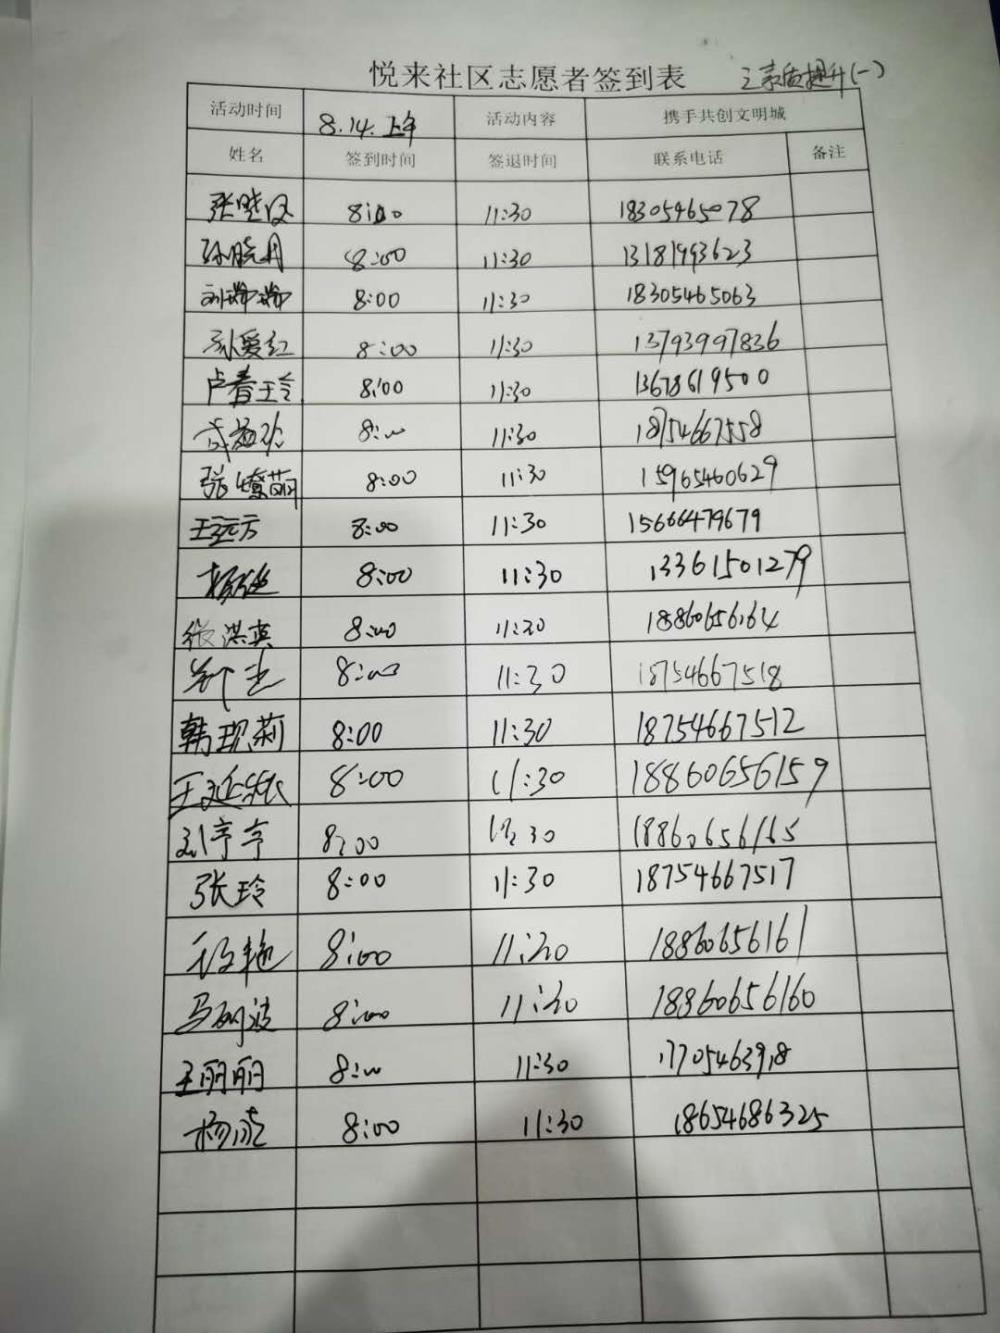 悦来社区志愿者签到表 素质提升(一)
活动时间 8.14.上午 活动内容 携手共创文明城
姓名 签到时间 签退时间 联系电话 备注
8:00 11:30 18305465078
孙晓丹 8:00 11:30 13181993623
刘瑞瑞 8:00 11:30 18305465063
孙爱红 8:00 11:30 13793997836
卢春玲 8:00 11:30 13678619500
8:00 11:30 18754667558
张嫽萌 8:00 11:30 15965460629
王远方 8:00 11:30 15666479679
8:00 11:30 13361501279
张洪英 8:00 11:30 18860656164
8:00 11:30 18754667518
韩现莉 8:00 11:30 18754667512
8:00 11:30 18860656159
刘亭亭 8:00 11:30 18860656165
张玲 8:00 11:30 18754667517
8:00 11:30 18860656161
8:00 11:30 18860656160
王丽丽 8:00 11:30
杨晓 8:00 11:30 18654686325